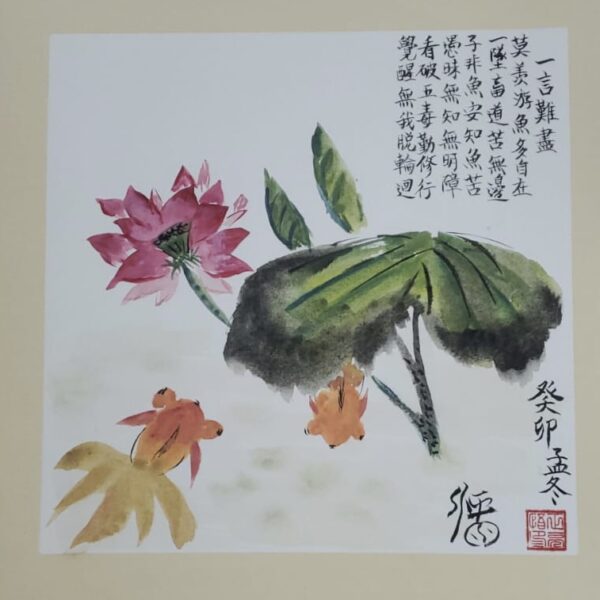 一言難盡
莫羡游魚多自在
一墜畜道苦無邊
子非魚安知魚苦
愚昧無知無明障
看破五毒勤修行
覺醒無我脱輪迴
癸卯孟冬